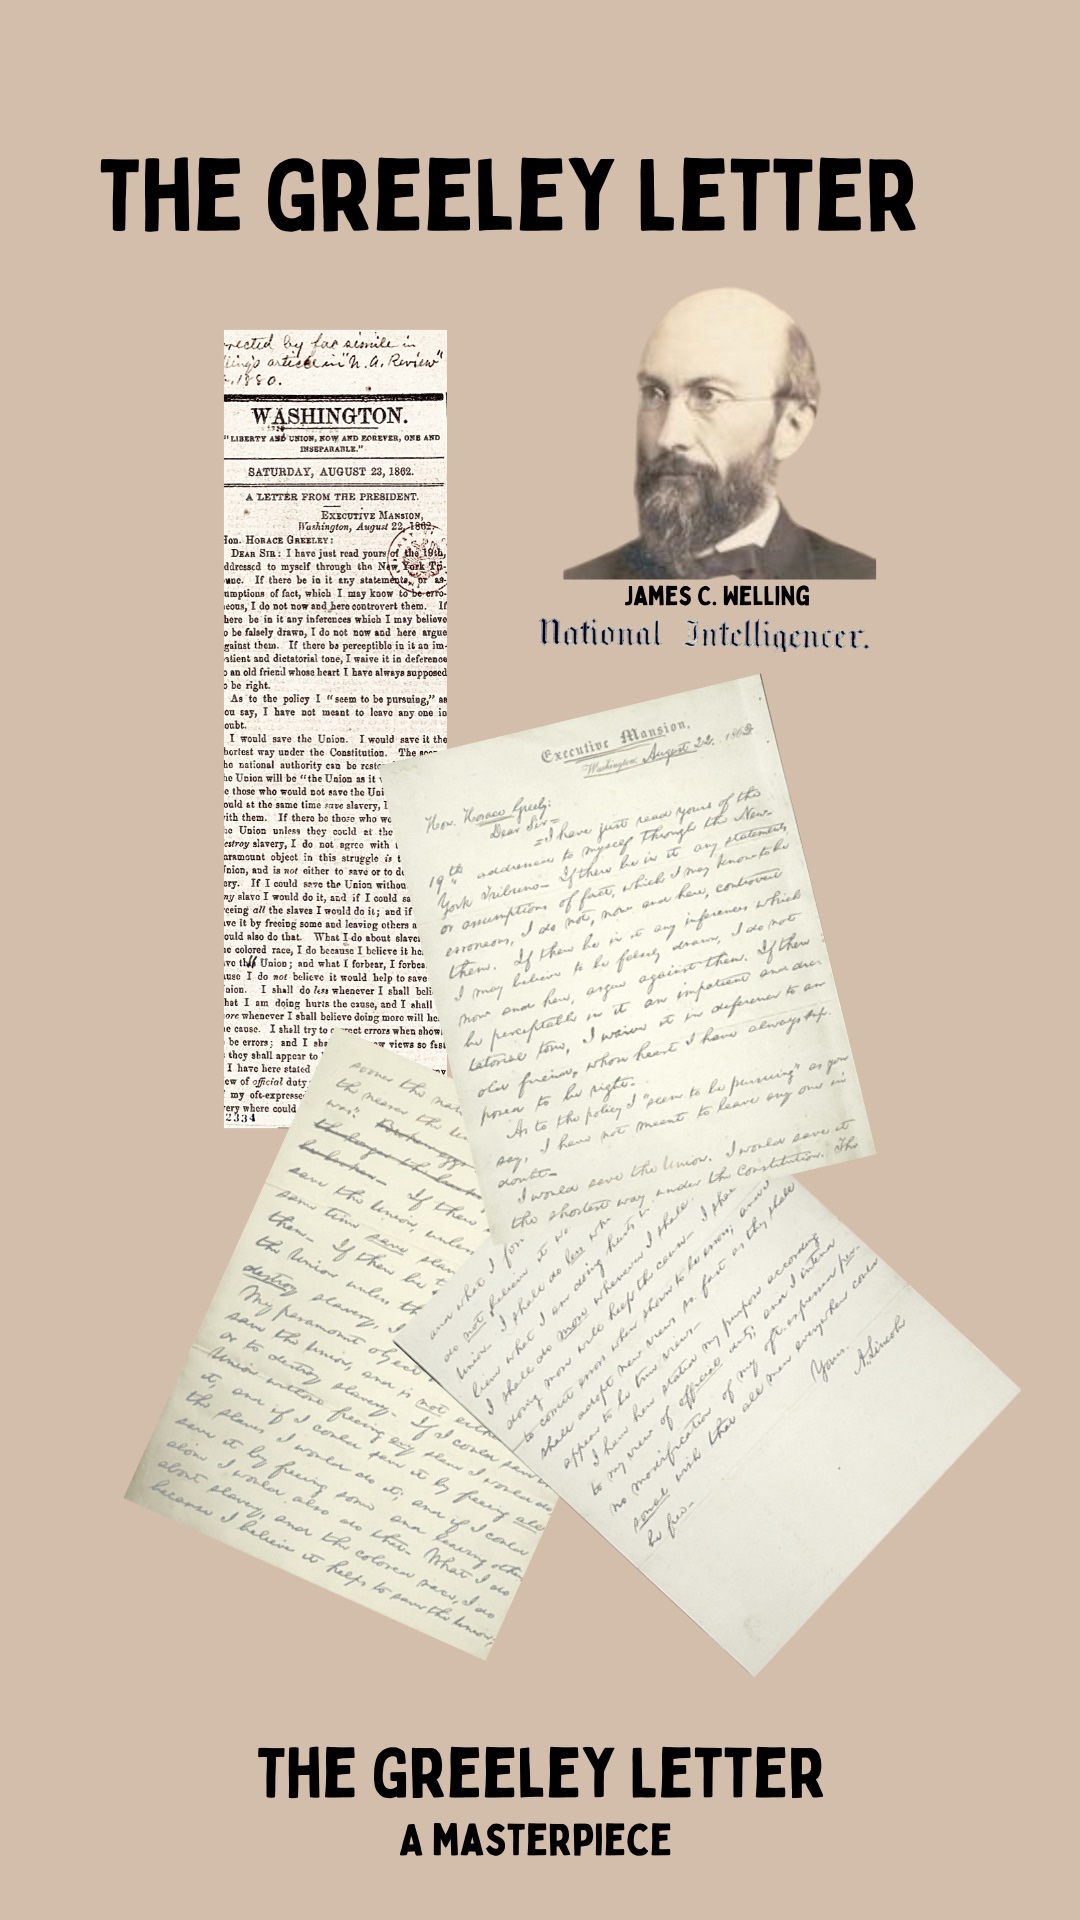 THE GREELEY LETTER
rrected by fac simile in
ling's article in "N. A. Review"
1880.
WASHINGTON.
"LIBERTY AND UNION, NOW AND FOREVER, ONE AND
INSEPARABLE."
SATURDAY, AUGUST 23, 1862.
A LETTER FROM THE PRESIDENT.
EXECUTIVE MANSION,
Washington, August 22, 1862.
Hon. HORACE GREELEY:
DEAR SIR: I have just read yours of the 19th,
ddressed to myself through the New York Tri-
une. If there be in it any statements, or as-
umptions of fact, which I may know to be erro-
eous, I do not now and here controvert them. If
here be in it any inferences which I may believe
o be falsely drawn, I do not now and here argue
gainst them. If there be perceptible in it an im-
atient and dictatorial tone, I waive it in deference
o an old friend whose heart I have always supposed
o be right.
As to the policy I "seem to be pursuing," as
ou say, I have not meant to leave any one in
oubt.
I would save the Union. I would save it the
hortest way under the Constitution. The soon
he national authority can be resto
he Union will be "the Union as it w
e those who would not save the Uni
ould at the same time save slavery, I
ith them. If there be those who wo
he Union unless they could at the
estroy slavery, I do not agree with
aramount object in this struggle is t
nion, and is not either to save or to de
ery. If I could save the Union withou
ny slave I would do it, and if I could sa
reeing all the slaves I would do it; and if
ave it by freeing some and leaving others a
ould also do that. What I do about slaver
he colored race, I do because I believe it he
ave the Union; and what I forbear, I forbea
ause I do not believe it would help to save
nion. I shall do less whenever I shall beli
hat I am doing hurts the cause, and I shall
ore whenever I shall believe doing more will he
he cause. I shall try to correct errors when show
be errors; and I sha w views so fast
s they shall appear to
I have here stated
iew of official duty
my oft-expresse
very where could
2334
JAMES C. WELLING
National Intelligencer.
Executive Mansion,
Washington, August 22, 1862.
Hon. Horace Greely:
Dear Sir=
=I have just read yours of the
19th addressed to myself through the New-
York Tribune- If there be in it any statements,
or assumptions of fact, which I may know to be
erroneous, I do not, now and here, controvert
them. If there be in it any inferences which
I may believe to be falsely drawn, I do not
now and here, argue against them. If there
be perceptable in it an impatient and dic-
tatorial tone, I waive it in deference to an
old friend, whose heart I have always sup-
posed to be right.
As to the policy I "seem to be pursuing" as you
say, I have not meant to leave any one in
doubt-
I would save the Union. I would save it
the shortest way under the Constitution. The
sooner the nat
the nearer the U
was."
If there
save the Union, unless
same time save slav
them- If there be t
the Union unless th
destroy slavery, I
My paramount object
save the Union, and is not eith
or to destroy slavery- If I could save
Union without freeing any slave I would do
it, and if I could save it by freeing all
the slaves I would do it; and if I could
save it by freeing some and leaving others
alone I would also do that- What I do
about slavery, and the colored race, I do
because I believe it helps to save the Union;
and what I for
not believe it wo
Union- I shall do less wh
lieve what I am doing hurts
I shall do more whenever I shall
doing more will help the cause- I shall
to correct errors when shown to be errors; and I
shall adopt new views so fast as they shall
appear to be true views-
I have here stated my purpose according
to my view of official duty; and I intend
no modification of my oft-expressed per-
sonal wish that all men everywhere could
be free-
Yours,
A. Lincoln
THE GREELEY LETTER
A MASTERPIECE